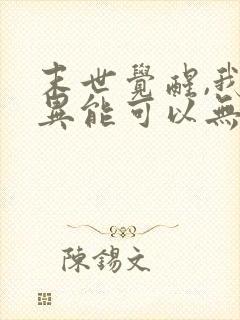 末世覺醒,我
異能可以無
陳錫文